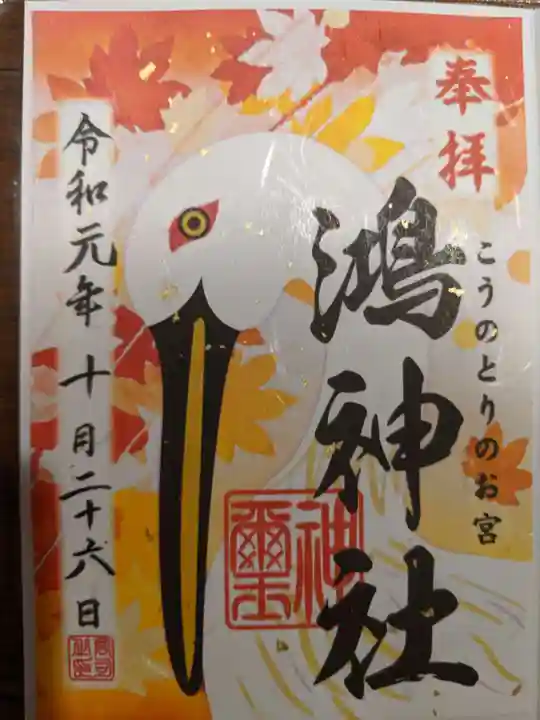 奉拝
こうのとりのお宮
鴻神社
神璽
令和元年十月二十六日